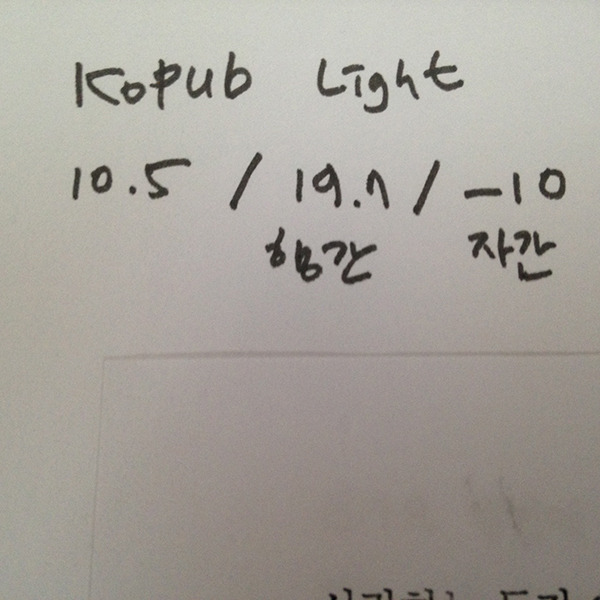 Kopub Light
10.5 / 19.7 / -10
행간 자간